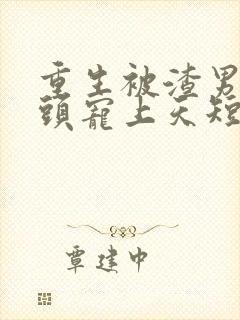 重生被渣男
頭寵上天短
覃建中